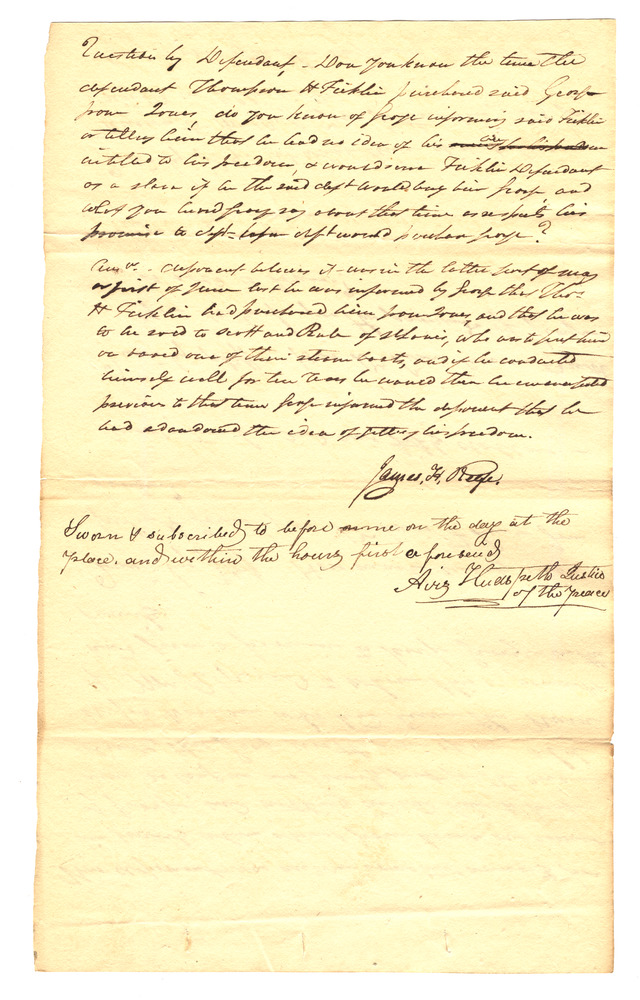 Question by Defendant, Don you know the time the
defendant Thompson H Ficklin purchased said George
from Jones, do you know of George informing said Ficklin
or telling him that he had no idea of his being
intitled to his freedom, & would serve Ficklin Defendant
as a slave if he the said deft would buy him George and
what you heard George say about that time as respects his
promise to deft deft would purchase George?
Ansr. deponent believes it was in the latter part of may
or first of June last he was informed by George that Tho.
H Ficklin had purchased him from Jones, and that he was
to be sold to Scott and Rule of St Louis, who was to put him
on board one of their steam boats, and if he conducted
himself well for ten years he would then be emancipated
previous to that time George informed the deponent that he
had abandoned the idea of getting his freedom.
James, H,
Sworn & subscribed, to before me on the day at the
place, and within the hours first aforesaid
Airs Hudspeth Justice
of the peace